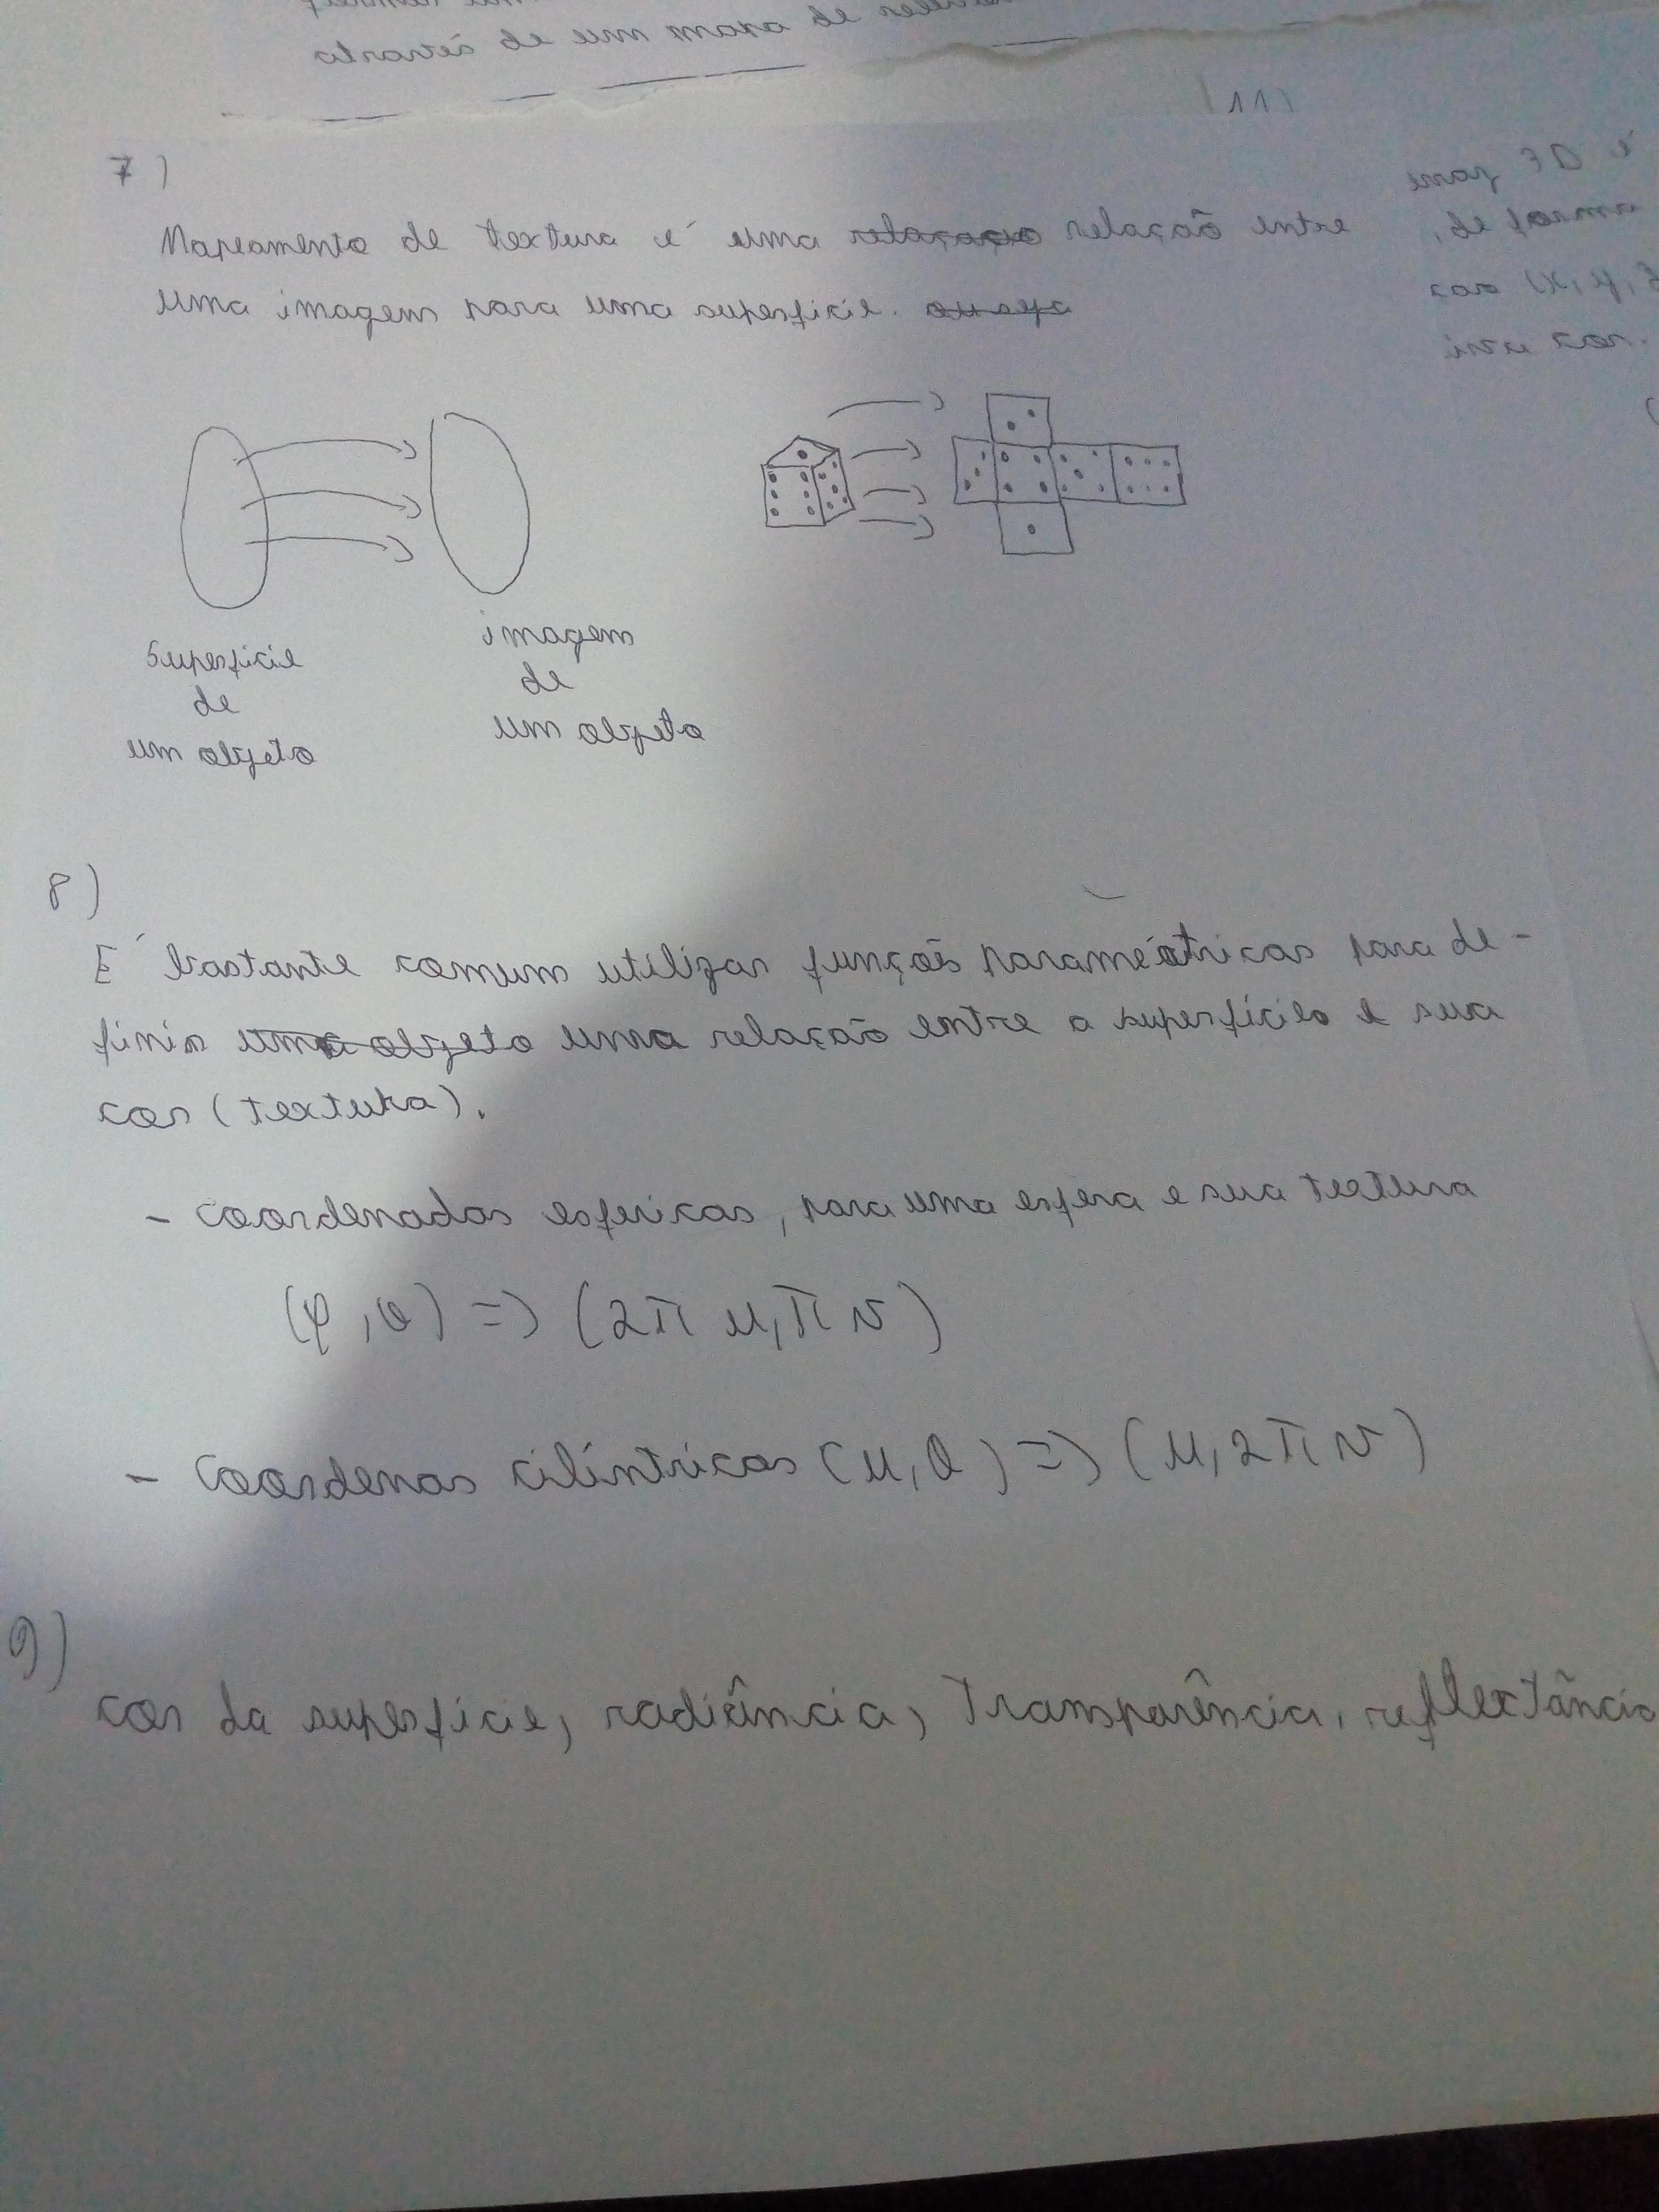 através de um mapa de
7)
Mapeamento de textura é uma relação entre
uma imagem para uma superficie.
superficie
de
um objeto
imagem
de
um objeto
8)
É bastante comum utilizar funções paramétricas para de-
finir uma objeto uma relação entre a superfície e sua
cor (textura).
- coordenadas esfericas, para uma esfera e sua textura
(φ, θ) => (2π u, π v)
- Coordenas cilíntricas (u, θ) => (u, 2π v)
9)
cor da superficie, radiância, transparência, reflextância